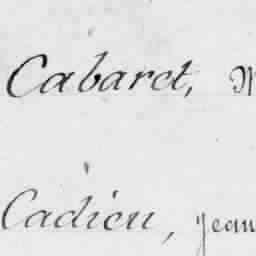 Cabaret,
Cadieu, Jean